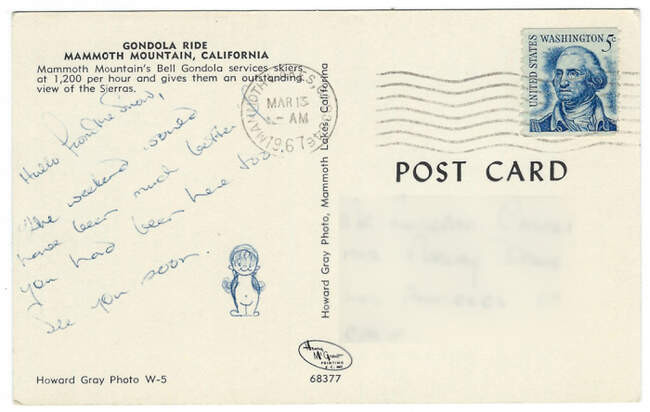 GONDOLA RIDE
MAMMOTH MOUNTAIN, CALIFORNIA
Mammoth Mountain's Bell Gondola services skiers
at 1,200 per hour and gives them an outstanding
view of the Sierras.
Hello from the Snow,
The weekend would
have been much better
you had been here too.
See you soon.
Howard Gray Photo W-5
Howard Gray Photo, Mammoth Lakes, California
68377
MAMMOTH LAKES
MAR 13
AM
1967
UNITED STATES
WASHINGTON 5c
POST CARD